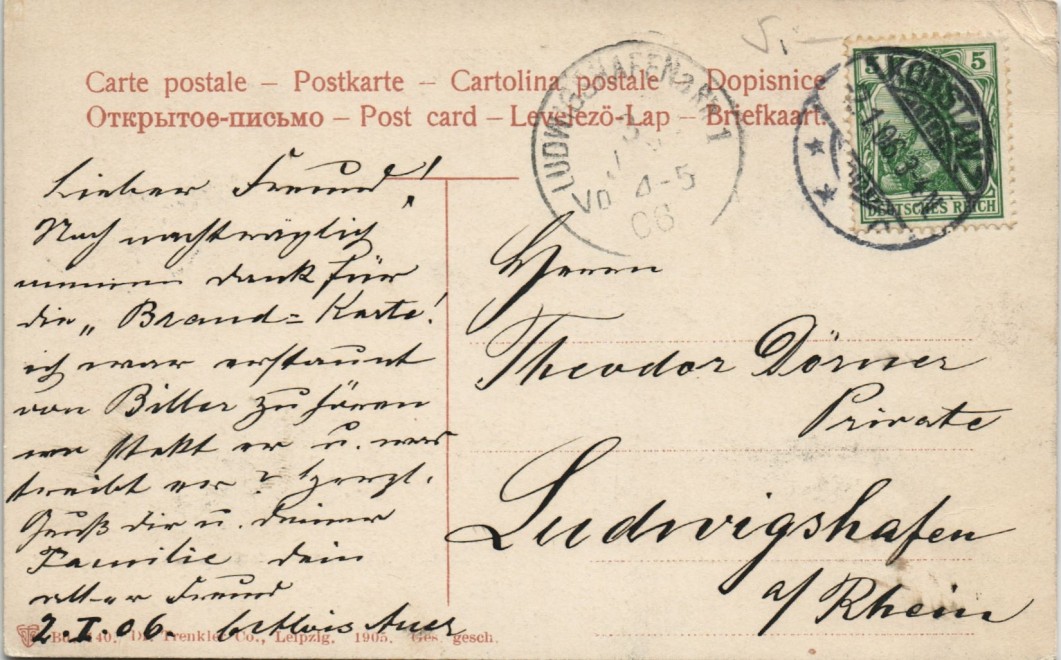 Carte postale – Postkarte – Cartolina postale – Dopisnice
Открытое-письмо – Post card – Levelező-Lap – Briefkaart.
5 5
DEUTSCHES REICH
KONSTANZ
LUDWIGSHAFEN a. RH. 1
Vo 4-5
06
5,–
Lieber Freund!
Noch nachträglich
meinen Dank für
die „Brand-Karte!
ich war erstaunt
von Biller zu hören
wo stekt er u. was
treibt er? Herzl.
Gruß dir u. deiner
Familie dein
alter Freund
2. I. 06. Auer
Herrn
Theodor Dörner
Private
Ludwigshafen
a/Rhein
Dr. Trenkler Co., Leipzig. 1905. Ges. gesch.